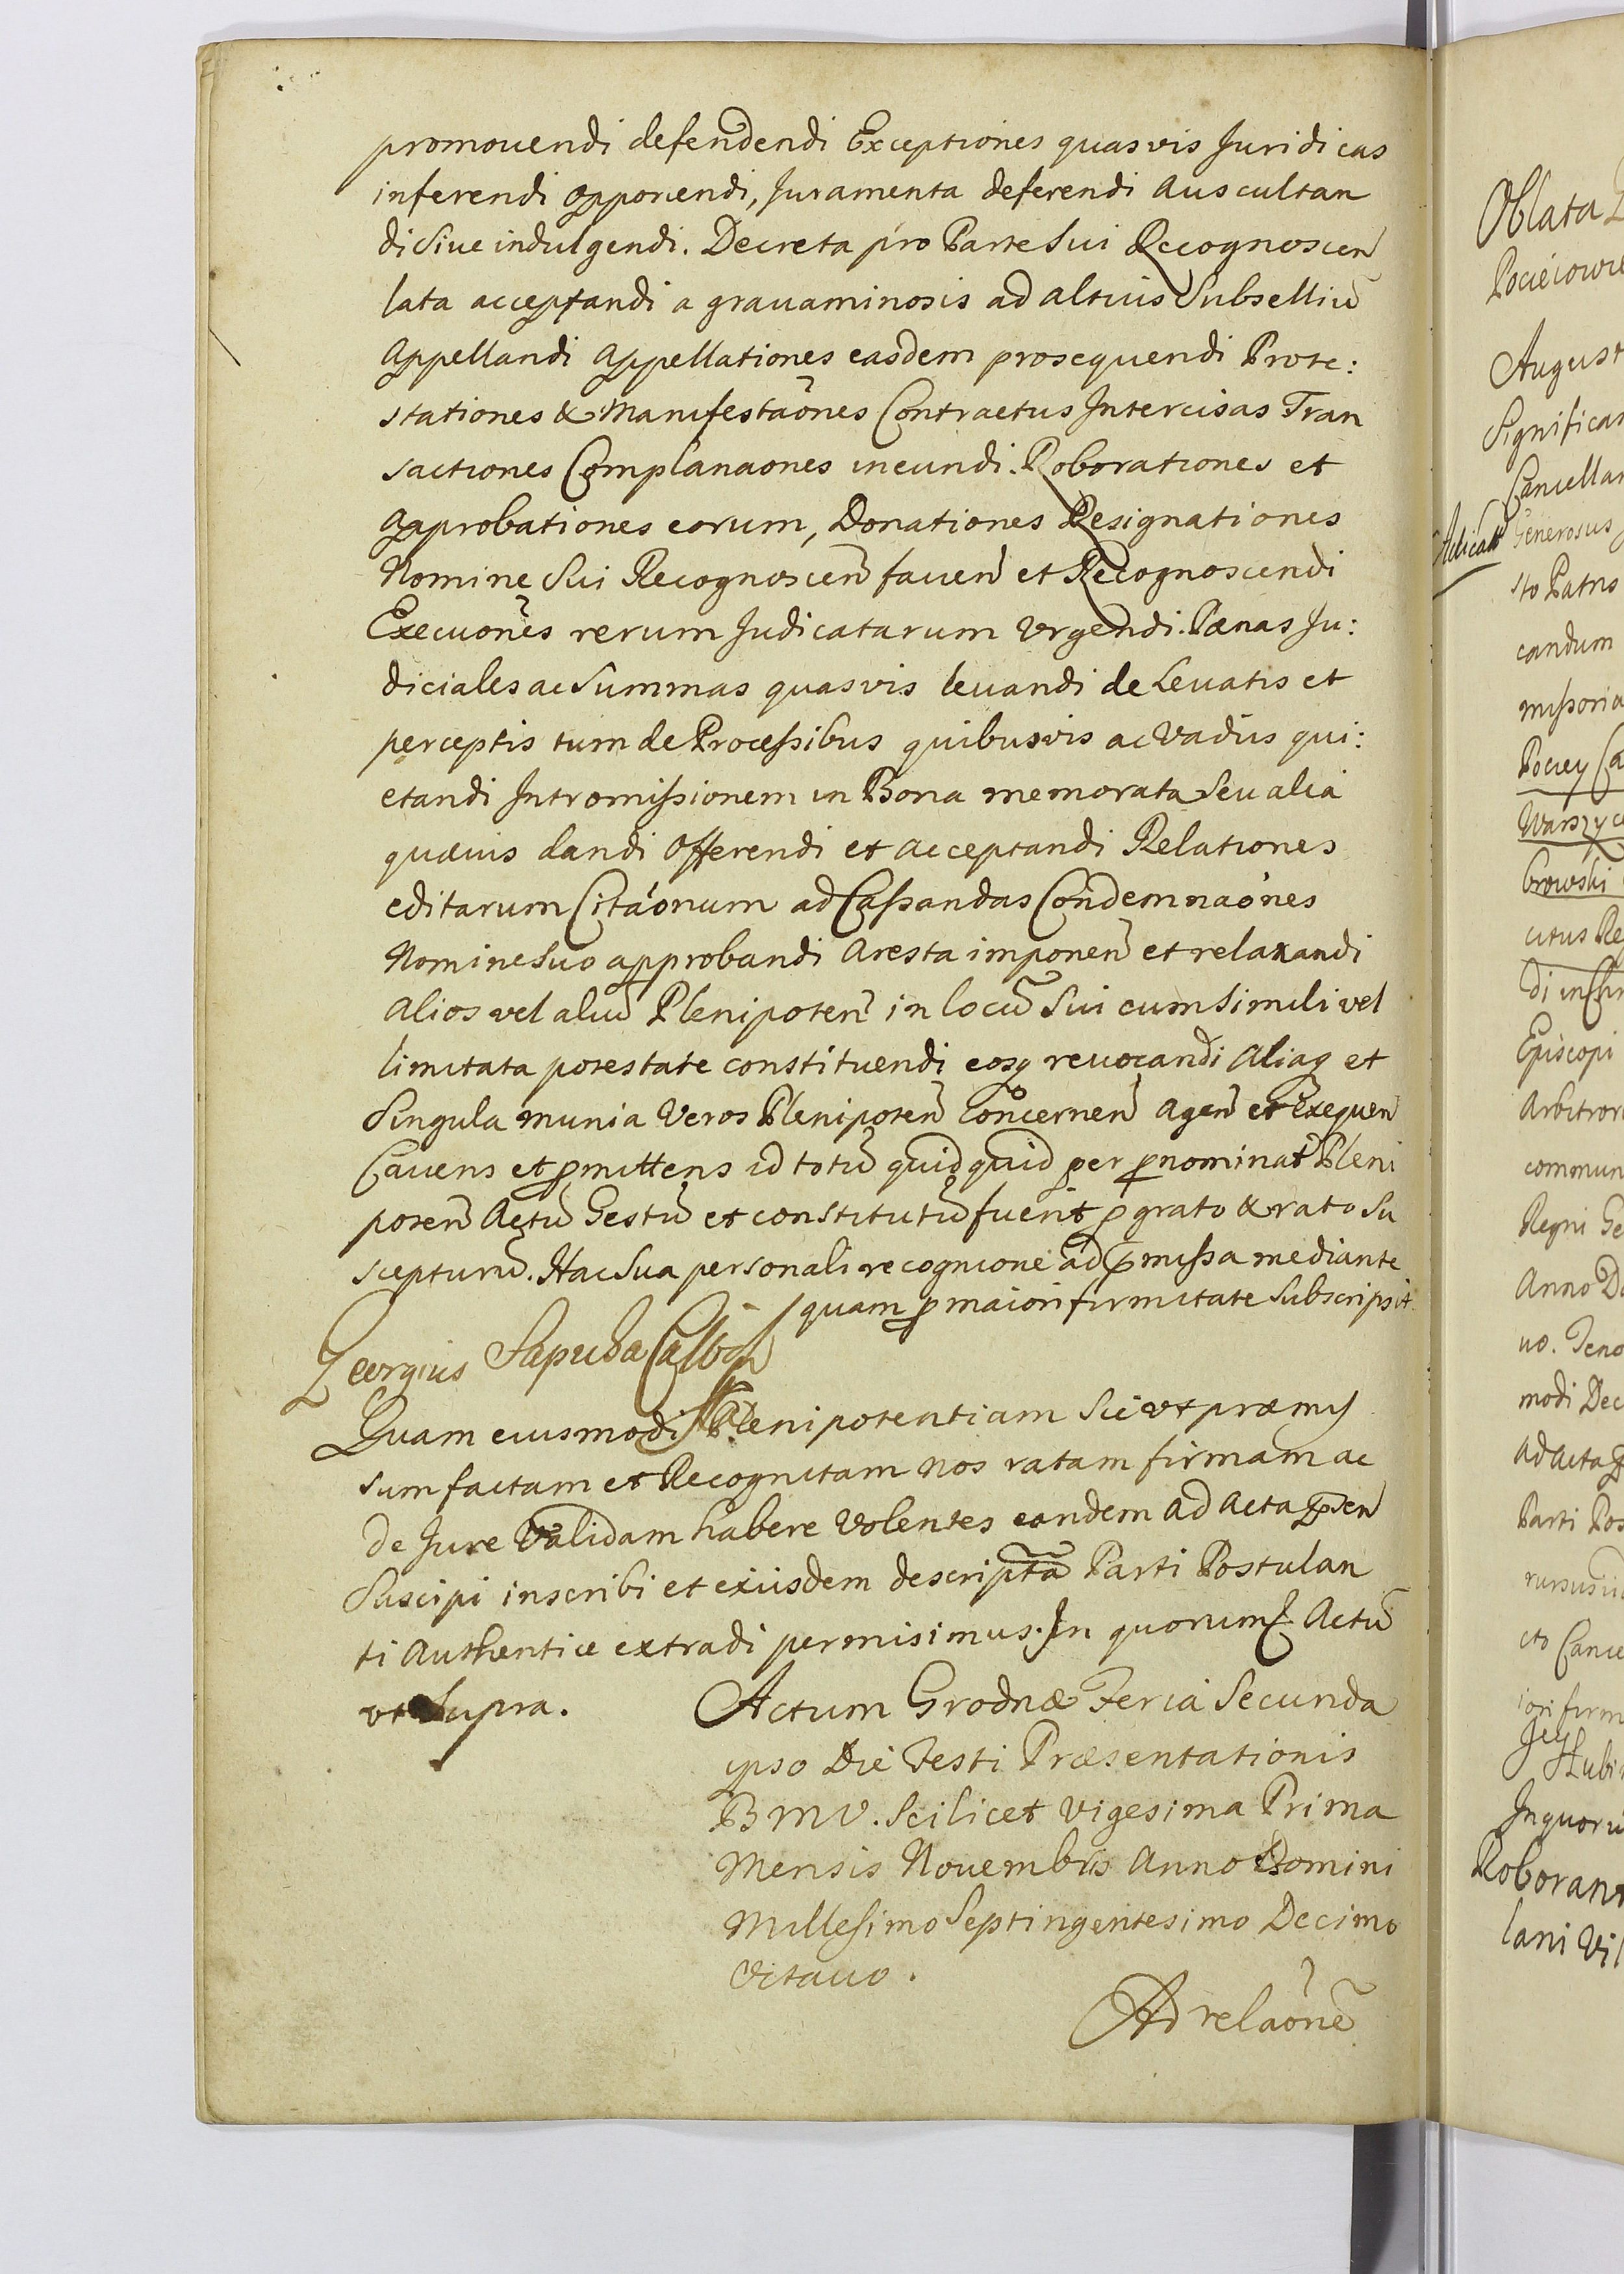 promouendi defendendi Exceptiones quasvis Juridicas
inferendi opponendi, Juramenta deferendi auscultan
di Siue indulgendi. Decreta pro Parte Sui Recognoscen̄
lata acceptandi a grauaminosis ad altius Subselliū
Appellandi Appellationes easdem prosequendi Prote:
stationes & Manifestaōnes Contractus Intercisas Tran
sactiones Complanaones ineundi. Roborationes et
approbationes eorum, Donationes Resignationes
Nomine Sui Recognoscen̄ fauen̄ et Recognoscendi
Execuōnes rerum Judicatarum Vrgendi. Pænas Ju:
diciales ac Summas quasvis leuandi de Leuatis et
perceptis tum de Processibus quibusvis ac Vadiis qui:
etandi Intromissionem in Bona memorata Seu alia
quæuis dandi Offerendi et acceptandi Relationes
editarum Citaōnum ad Cassandas Condemnaōnes
Nomine Suo approbandi Aresta imponen̄ et relaxandi
alios vel aliū Plenipoten̄ in locū Sui cum Simili vel
limitata potestate constituendi eosq revocandi Aliaq et
Singula munia Veros Plenipoten̄ Concernen̄ agen̄ et exequen̄
Cauens et pmittens id totū quidquid per pnominat Pleni
poten̄ Actū Gestū et constitutū fuerit p grato & rato Su
scepturū. Hac Sua personali recognicione ad pmissa mediante
quam p maiori firmitate Subscripsit.
Georgius Sapieha
Quam eiusmodi Plenipotentiam Sic vt præmis
sum factam et Recognitam nos ratam firmam ac
de Jure Validam habere Volentes eandem ad Acta pn̄sen̄
Suscipi inscribi et eiusdem descripta Parti Postulan
ti Authentice extradi permisimus. In quorum f. Actū
vt Supra.
Actum Grodnæ Feria Secunda
ipso Die Festi Præsentationis
B M V. Scilicet Vigesima Prima
Mensis Nouembris Anno Domini
Millesimo Septingentesimo Decimo
Octauo.
Ad relaōnē
Oblata
August
Cancellar
Generosus
sto Patris
candum
missoria
Pociey Ca
Warszyc
browski
citus Re
Episcopi
Arbitror
commun
Regni Ge
Anno Do
uo. Teno
modi Dec
ad acta
Parti Pos
cto Cance
iori firm
In quoru
Roborant
lani Vil